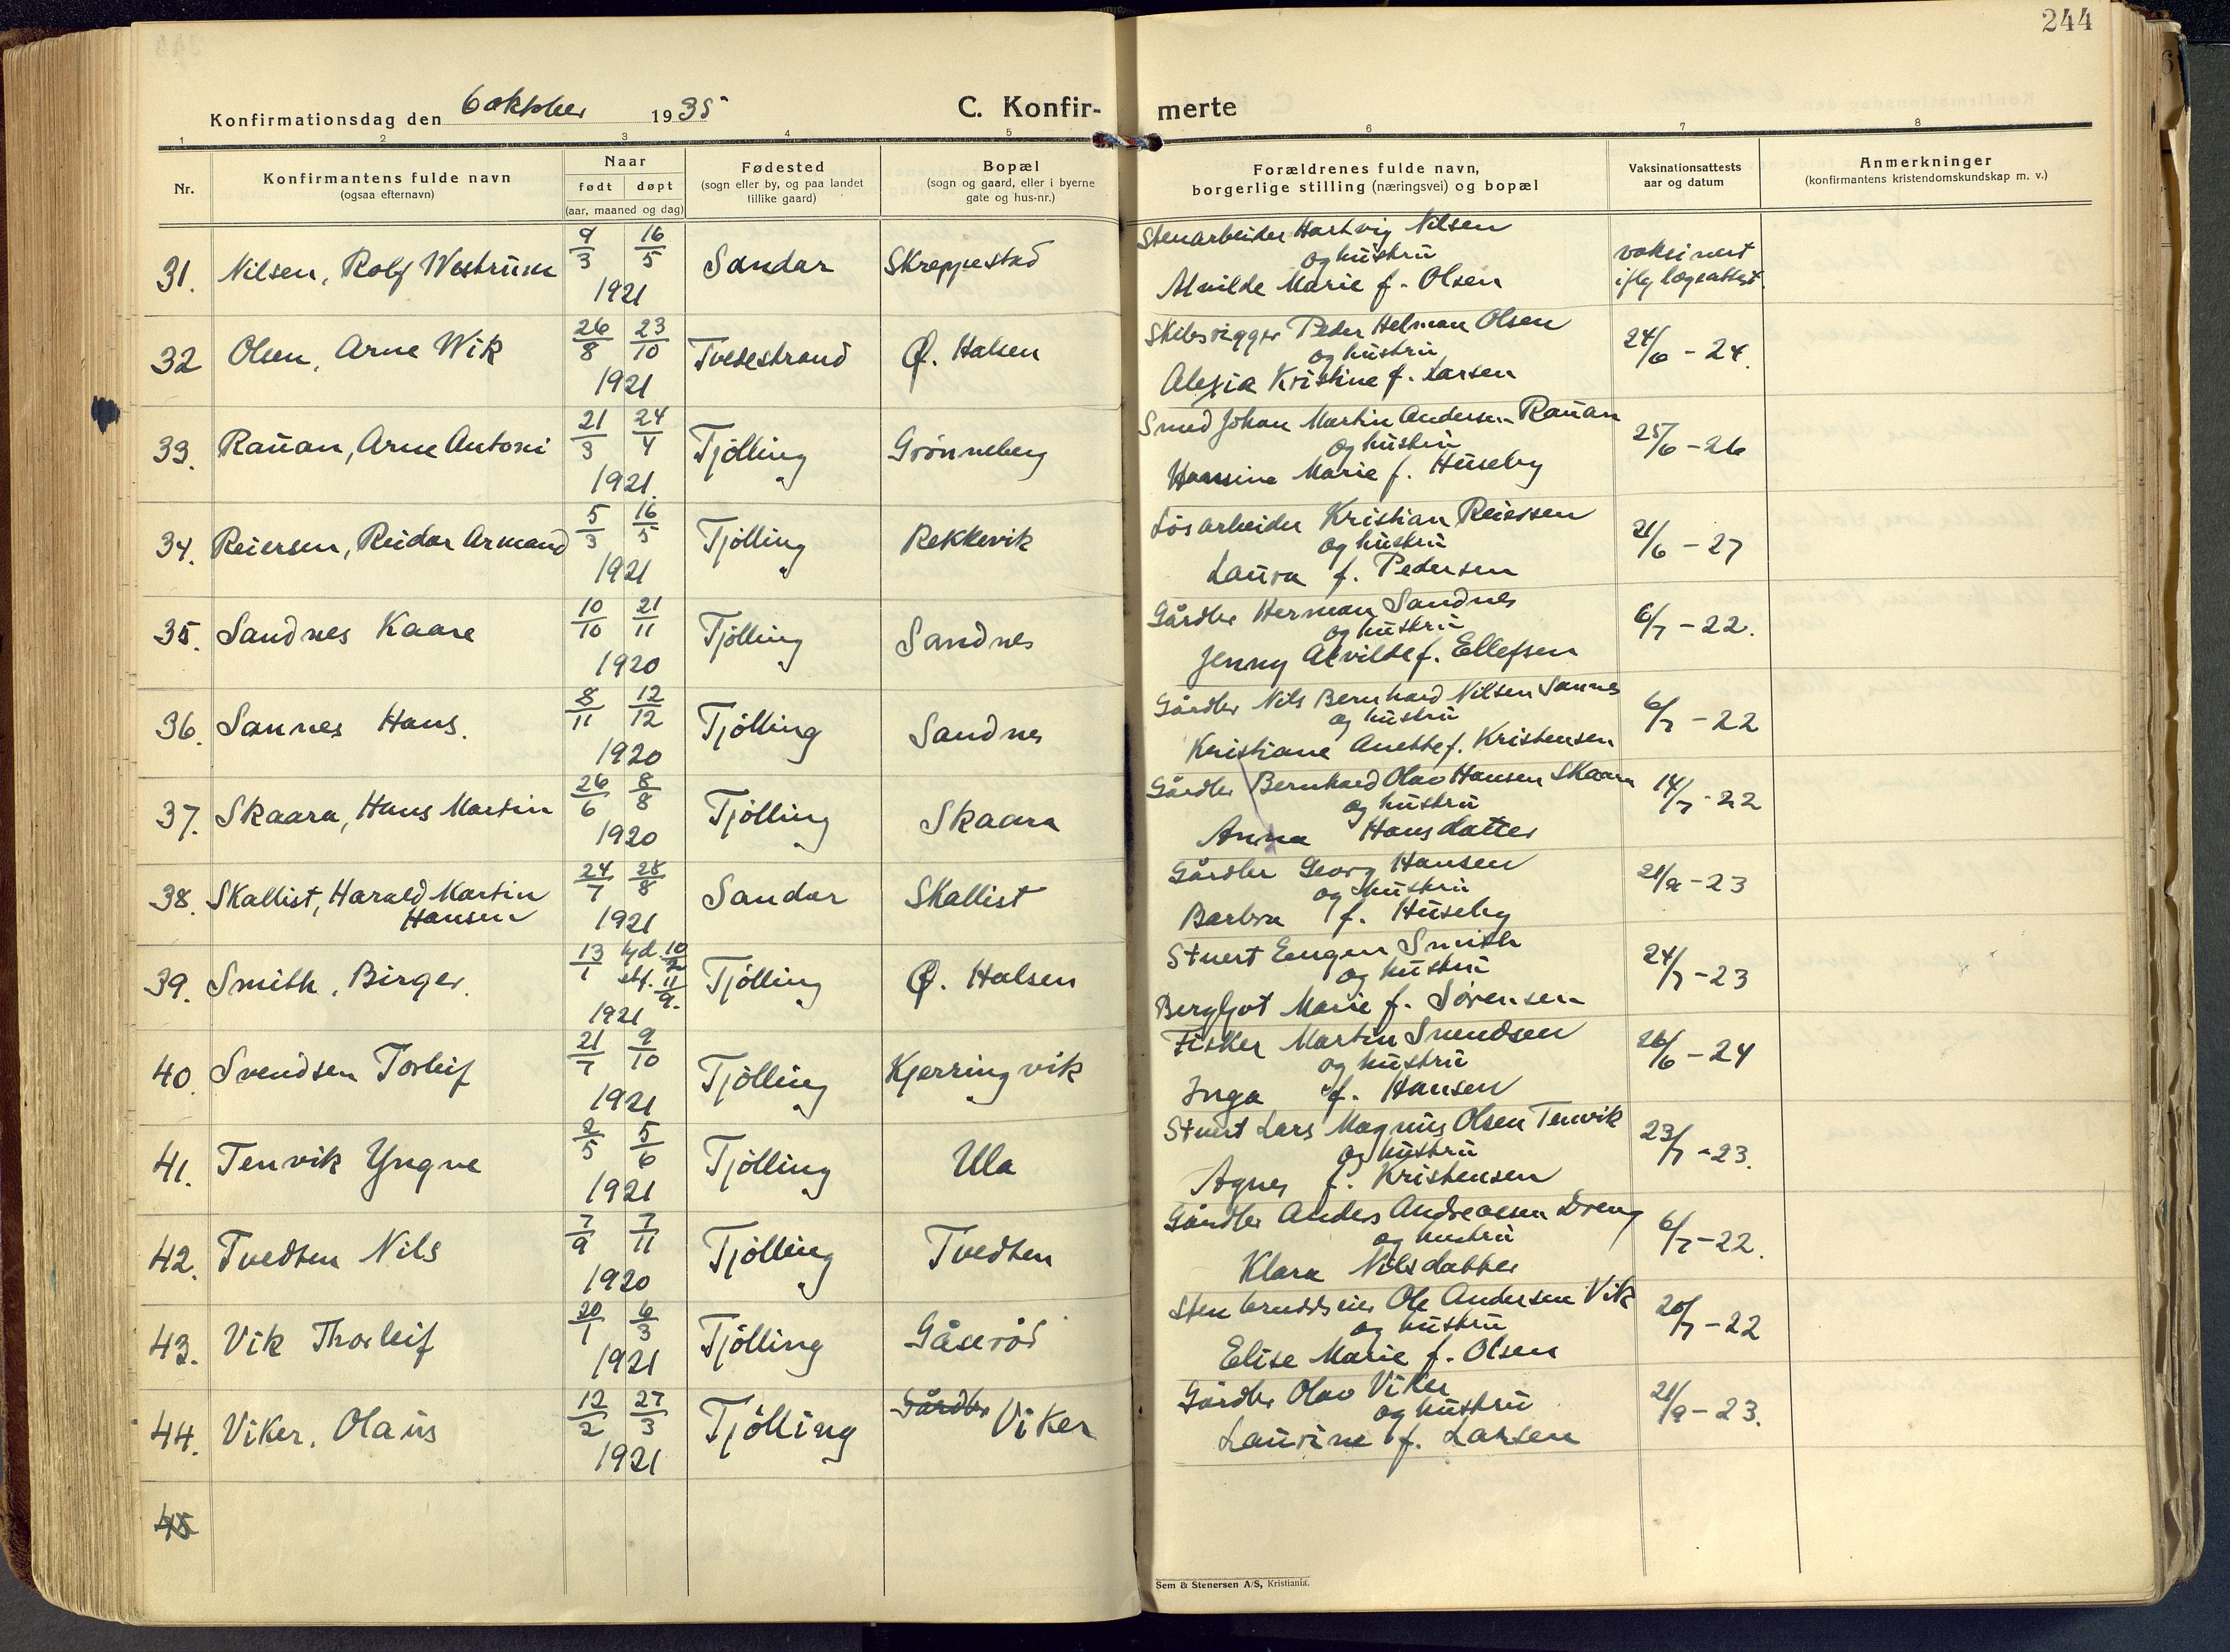 244
Konfirmationsdag den 6 oktober 1935
C. Konfir- merte
1 2 3 4 5 6 7 8
Nr.
Konfirmantens fulde navn
(ogsaa efternavn)
Naar
født døpt
(aar, maaned og dag)
Fødested
(sogn eller by, og paa landet
tillike gaard)
Bopæl
(sogn og gaard, eller i byerne
gate og hus-nr.)
Forældrenes fulde navn,
borgerlige stilling (næringsvei) og bopæl
Vaksinationsattests
aar og datum
Anmerkninger
(konfirmantens kristendomskundskap m. v.)
31. Nilsen, Rolf Westrum 9/3 16/5 1921 Sandar Skreppestad
Stenarbeider Hartvig Nilsen
og hustru
Alvilde Marie f. Olsen
vaksinert
iflg lægeattest.
32 Olsen, Arne Wik 26/8 23/10 1921 Tvedestrand Ø. Halsen
Skibsrigger Peder Helman Olsen
og hustru
Alexia Kristine f. Larsen
24/6 - 24.
33. Rauan, Arne Antoni 21/3 24/4 1921. Tjölling Grönneberg
Smed Johan Martin Andersen Rauan
og hustru
Hansine Marie f. Huseby
25/6 - 26
34. Reiersen, Reidar Armand 5/3 16/5 1921 Tjölling Rekkevik
Lösarbeider Kristian Reiersen
og hustru
Laura f. Pedersen
21/6 - 27
35. Sandnes Kaare 10/10 21/11 1920 Tjölling Sandnes
Gårdbr Herman Sandnes
og hustru
Jenny Alvilde f. Ellefsen
6/7 - 22.
36. Sannes Hans. 8/11 12/12 1920 Tjölling Sandnes
Gårdbr Nils Bernhard Nilsen Sannes
og hustru
Kristiane Anette f. Kristensen
6/7 - 22
37. Skaara, Hans Martin 26/6 8/8 1920 Tjölling Skaara
Gårdbr Bernhard Olav Hansen Skaara
og hustru
Anna Hansdatter
14/7 - 22
38. Skallist, Harald Martin
Hansen 24/7 28/8 1921 Sandar Skallist
Gårdbr Georg Hansen
og hustru
Barbra f. Huseby
21/9 - 23
39. Smith, Birger. 13/1 hjd. 10/2 stf. 11/9. 1921 Tjölling Ø. Halsen
Stuert Eugen Smith
og hustru
Bergljot Marie f. Sörensen
24/7 - 23
40. Svendsen Torleif 21/7 9/10 1921 Tjölling Kjerringvik
Fisker Martin Svendsen
og hustru
Inga f. Hansen
26/6 - 24
41. Tenvik Yngve 2/5 5/6 1921 Tjölling Ula
Stuert Lars Magnus Olsen Tenvik
og hustru
Agnes f. Kristensen
23/7 - 23.
42. Tvedten Nils 7/9 7/11 1920 Tjölling Tvedten
Gårdbr Anders Andreasen Dreng
og hustru
Klara Nilsdatter
6/7 - 22.
43. Vik Thorleif 20/1 6/3 1921 Tjölling Gåseröd
Stenbruddseier Ole Andersen Vik
og hustru
Elise Marie f. Olsen
20/7 - 22
44. Viker, Olaus 12/2 27/3 1921 Tjölling Gårdbr Viker
Gårdbr Olav Viker
og hustru
Laurine f. Larsen
21/9 - 23.
45
Sem & Stenersen A/S, Kristiania.